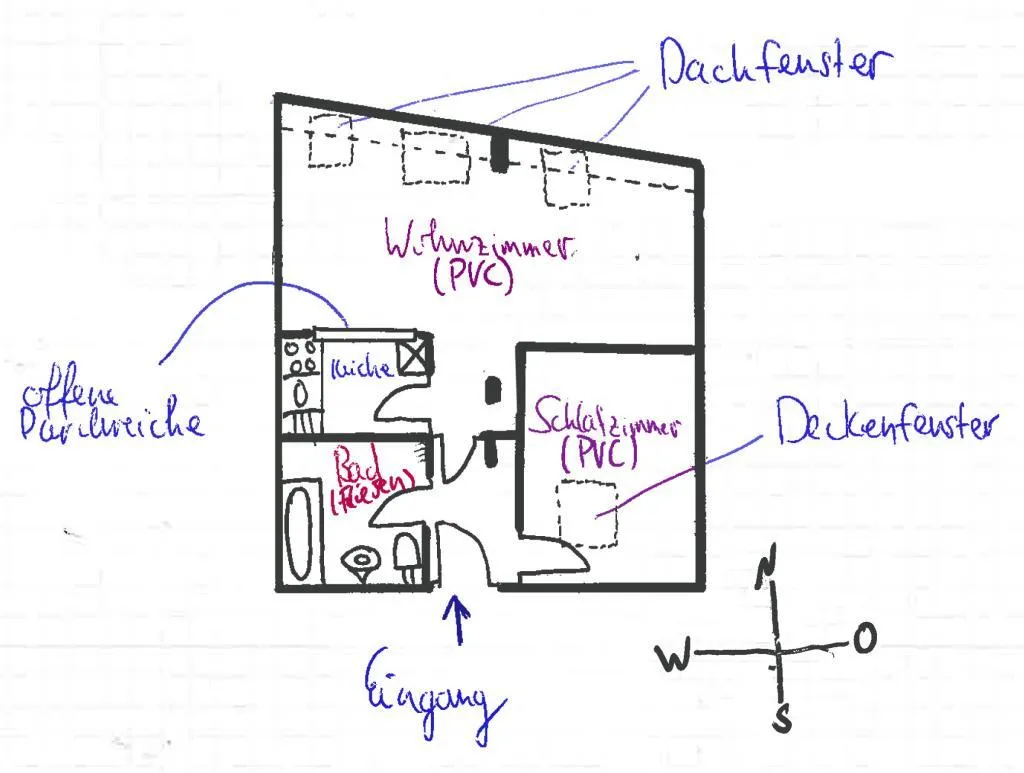 Dachfenster
Wohnzimmer
(PVC)
offene
Durchreiche
Küche
Schlafzimmer
(PVC)
Deckenfenster
Bad
(Fliesen)
N
W
O
S
Eingang